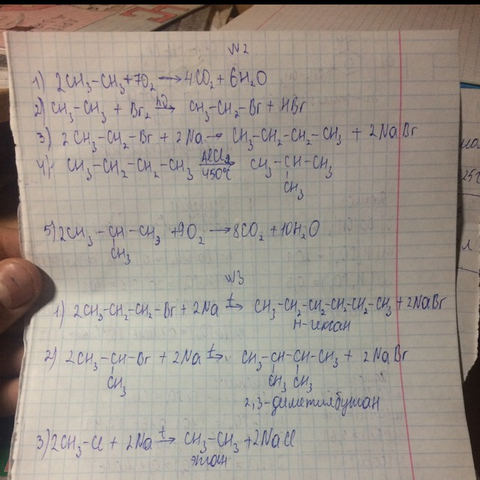 №2
1) 2CH₃–CH₃+7O₂ → 4CO₂ + 6H₂O
2) CH₃–CH₃ + Br₂ →(hν) CH₃–CH₂–Br + HBr
3) 2CH₃–CH₂–Br + 2Na → CH₃–CH₂–CH₂–CH₃ + 2NaBr
4) CH₃–CH₂–CH₂–CH₃ →(AlCl₃, 450°C) CH₃–CH–CH₃
CH₃
5) 2CH₃–CH–CH₃ +9O₂ → 8CO₂ + 10H₂O
CH₃
№3
1) 2CH₃–CH₂–CH₂–Br + 2Na →(t) CH₃–CH₂–CH₂–CH₂–CH₂–CH₃ + 2NaBr
Н-гексан
2) 2CH₃–CH–Br + 2Na →(t) CH₃–CH–CH–CH₃ + 2NaBr
CH₃ CH₃ CH₃
2,3-диметилбутан
3) 2CH₃–Cl + 2Na →(t) CH₃–CH₃ + 2NaCl
этан